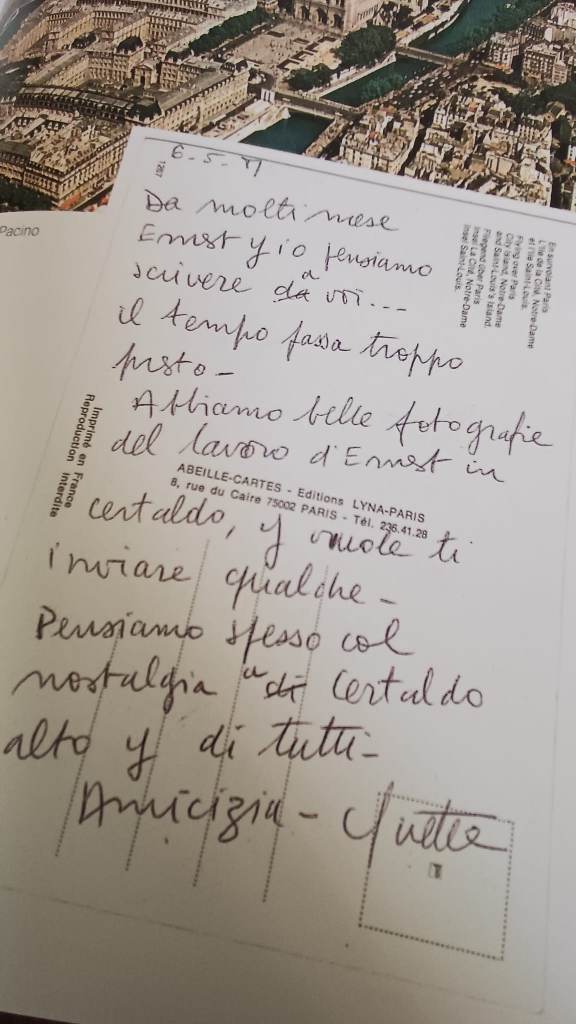 Pacino
6-5-91
1287
Da molti mese
Ernest y io pensiamo
scrivere da a voi...
il tempo passa troppo
presto-
Abbiamo belle fotografie
del lavoro d'Ernest in
certaldo, y vuole ti
inviare qualche-
Pensiamo spesso col
nostalgia di a Certaldo
alto y di tutti-
Amicizia- Yvette
En survolant Paris
L'Ile de la Cité, Notre-Dame
et l'Ile Saint-Louis.
Flying over Paris
City Island, Notre-Dame
and Saint-Louis's Island.
Fliegend über Paris
Insel La Cité, Notre-Dame
Insel Saint-Louis.
ABEILLE-CARTES - Editions LYNA-PARIS
8, rue du Caire 75002 PARIS - Tél. 236.41.28
Imprimé en France
Reproduction Interdite